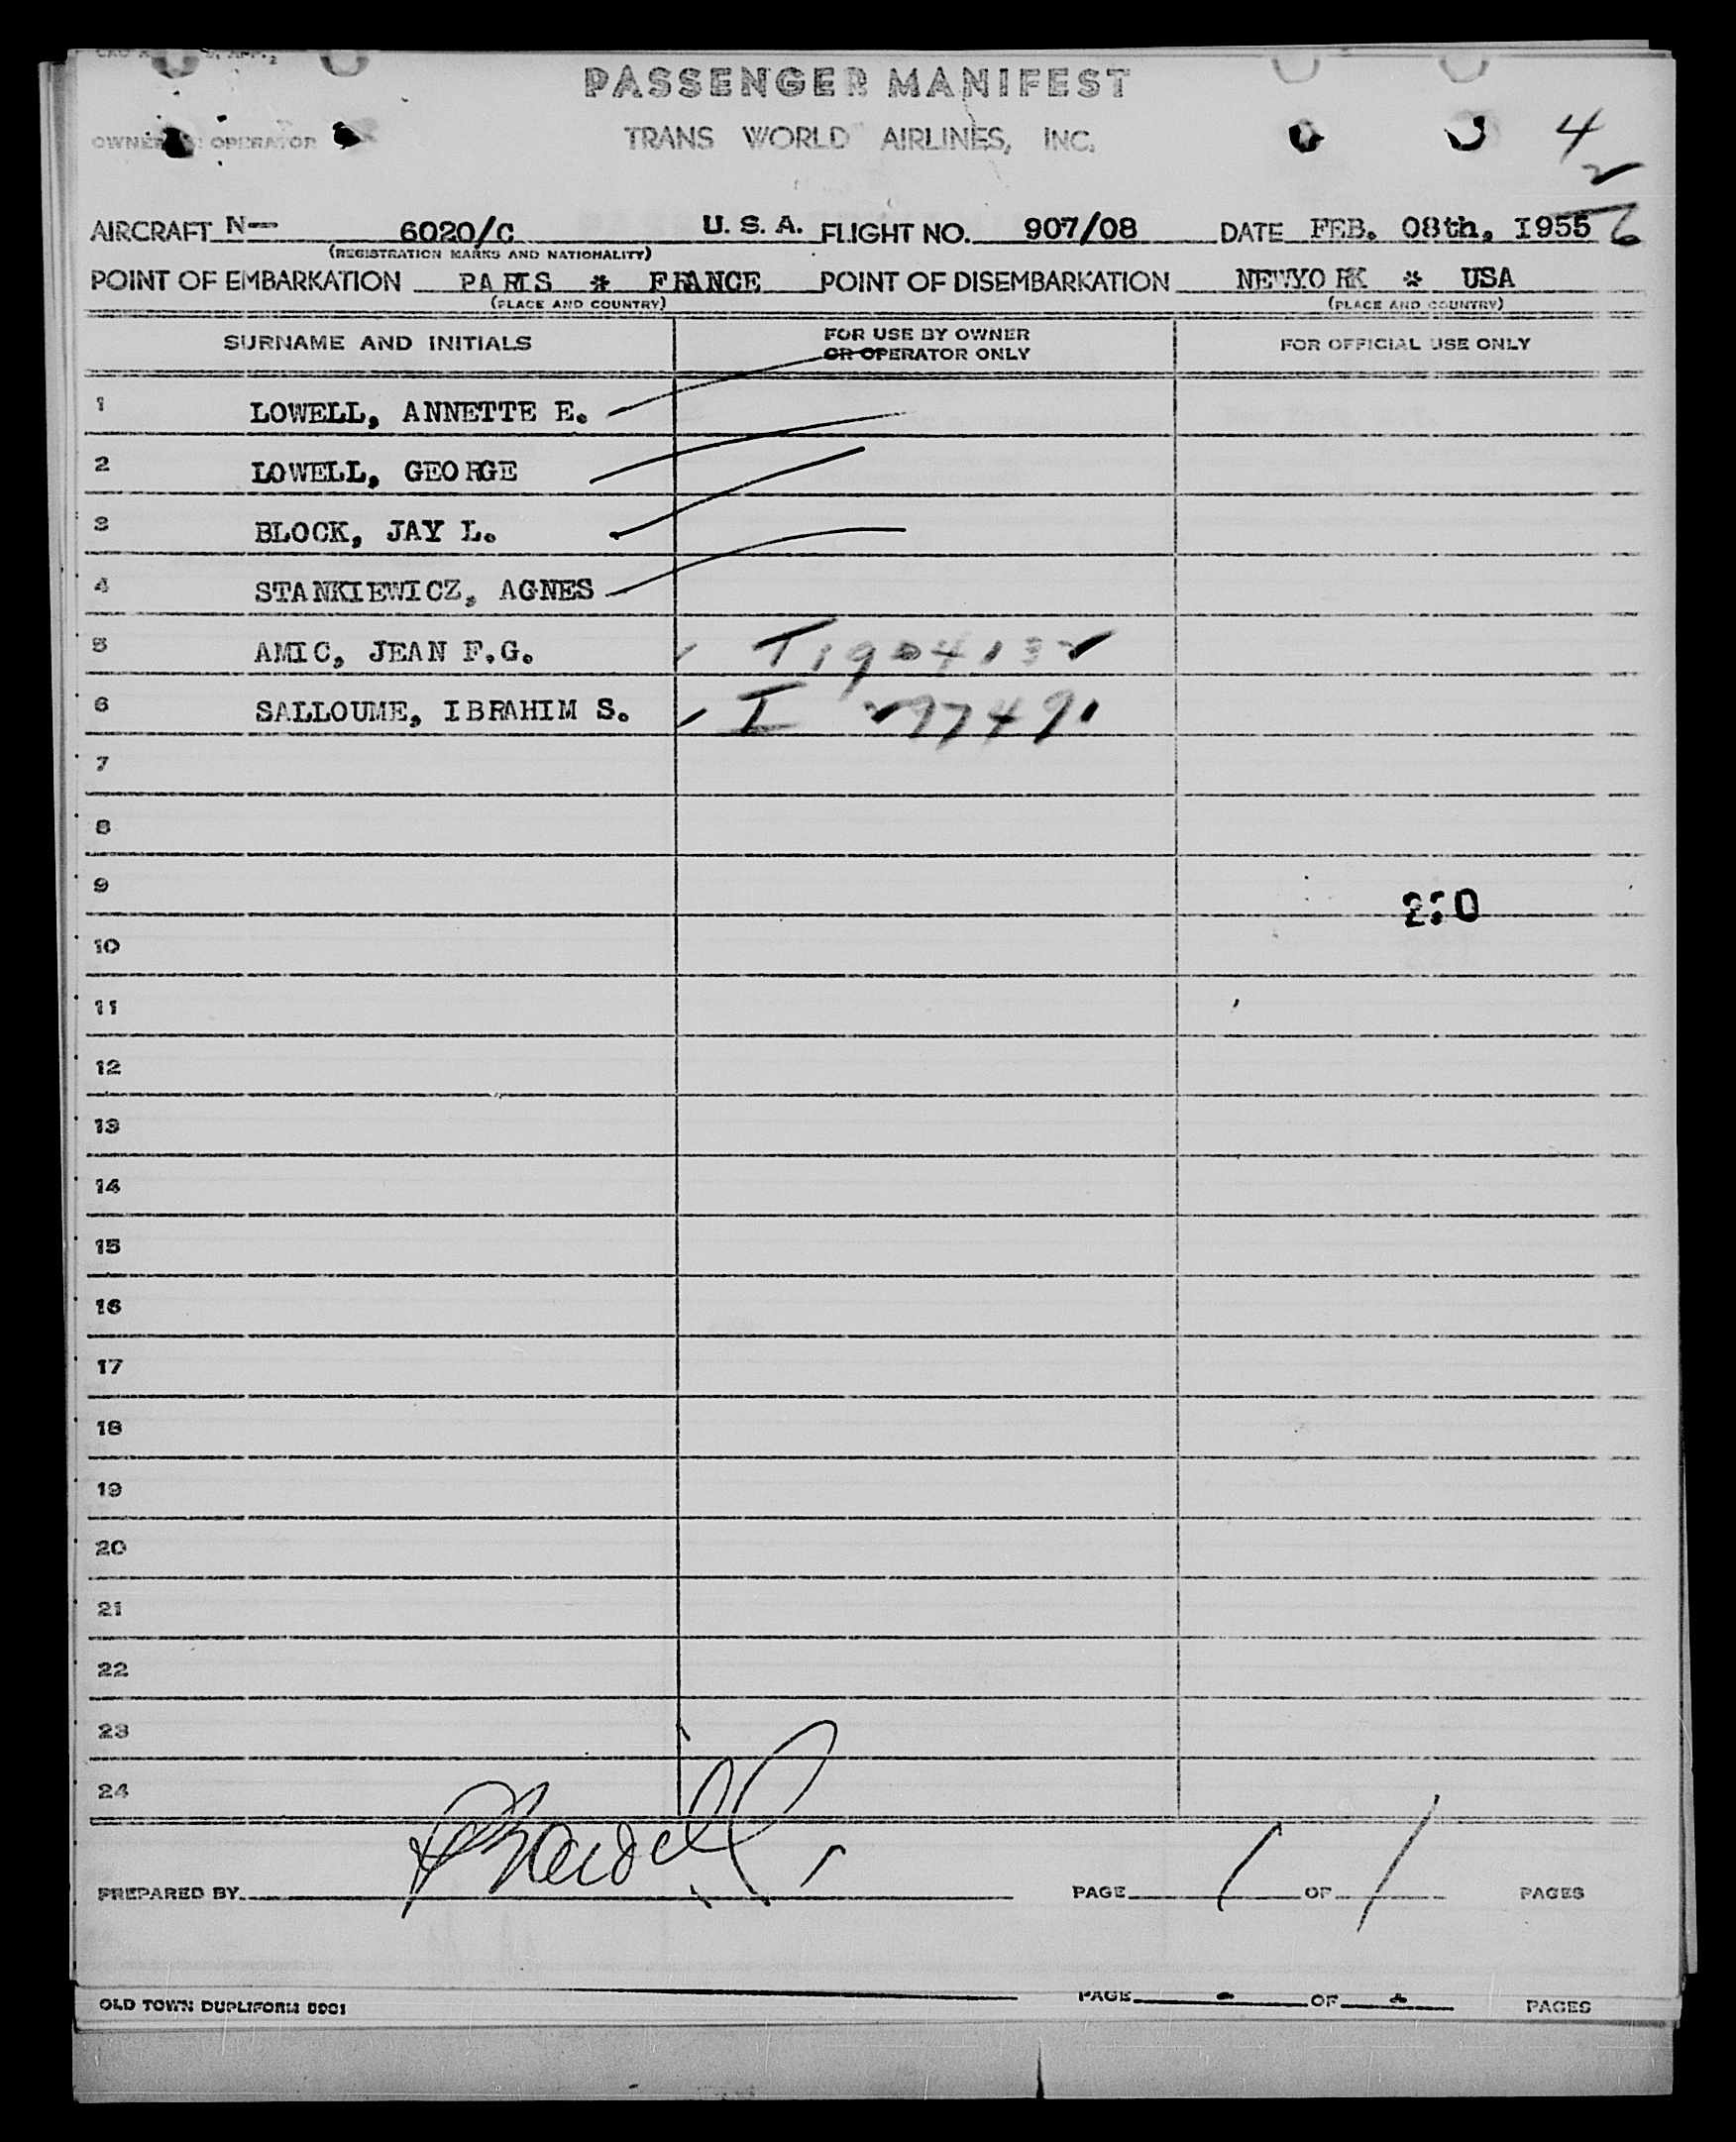 PASSENGER MANIFEST
OWNER OPERATOR
TRANS WORLD AIRLINES, INC.
4
2
6
AIRCRAFT N-- 6020/C U. S. A. FLIGHT NO. 907/08 DATE FEB. 08th, I955
(REGISTRATION MARKS AND NATIONALITY)
POINT OF EMBARKATION PARIS * FRANCE POINT OF DISEMBARKATION NEWYORK * USA
(PLACE AND COUNTRY) (PLACE AND COUNTRY)
SURNAME AND INITIALS FOR USE BY OWNER OR OPERATOR ONLY FOR OFFICIAL USE ONLY
1 LOWELL, ANNETTE E.
2 LOWELL, GEORGE
3 BLOCK, JAY L.
4 STANKIEWICZ, AGNES
5 AMIC, JEAN F.G.
6 SALLOUME, IBRAHIM S.
7
8
9
10
11
12
13
14
15
16
17
18
19
20
21
22
23
24
PREPARED BY PAGE 1 OF 1 PAGES
PAGE OF PAGES
OLD TOWN DUPLIFORM